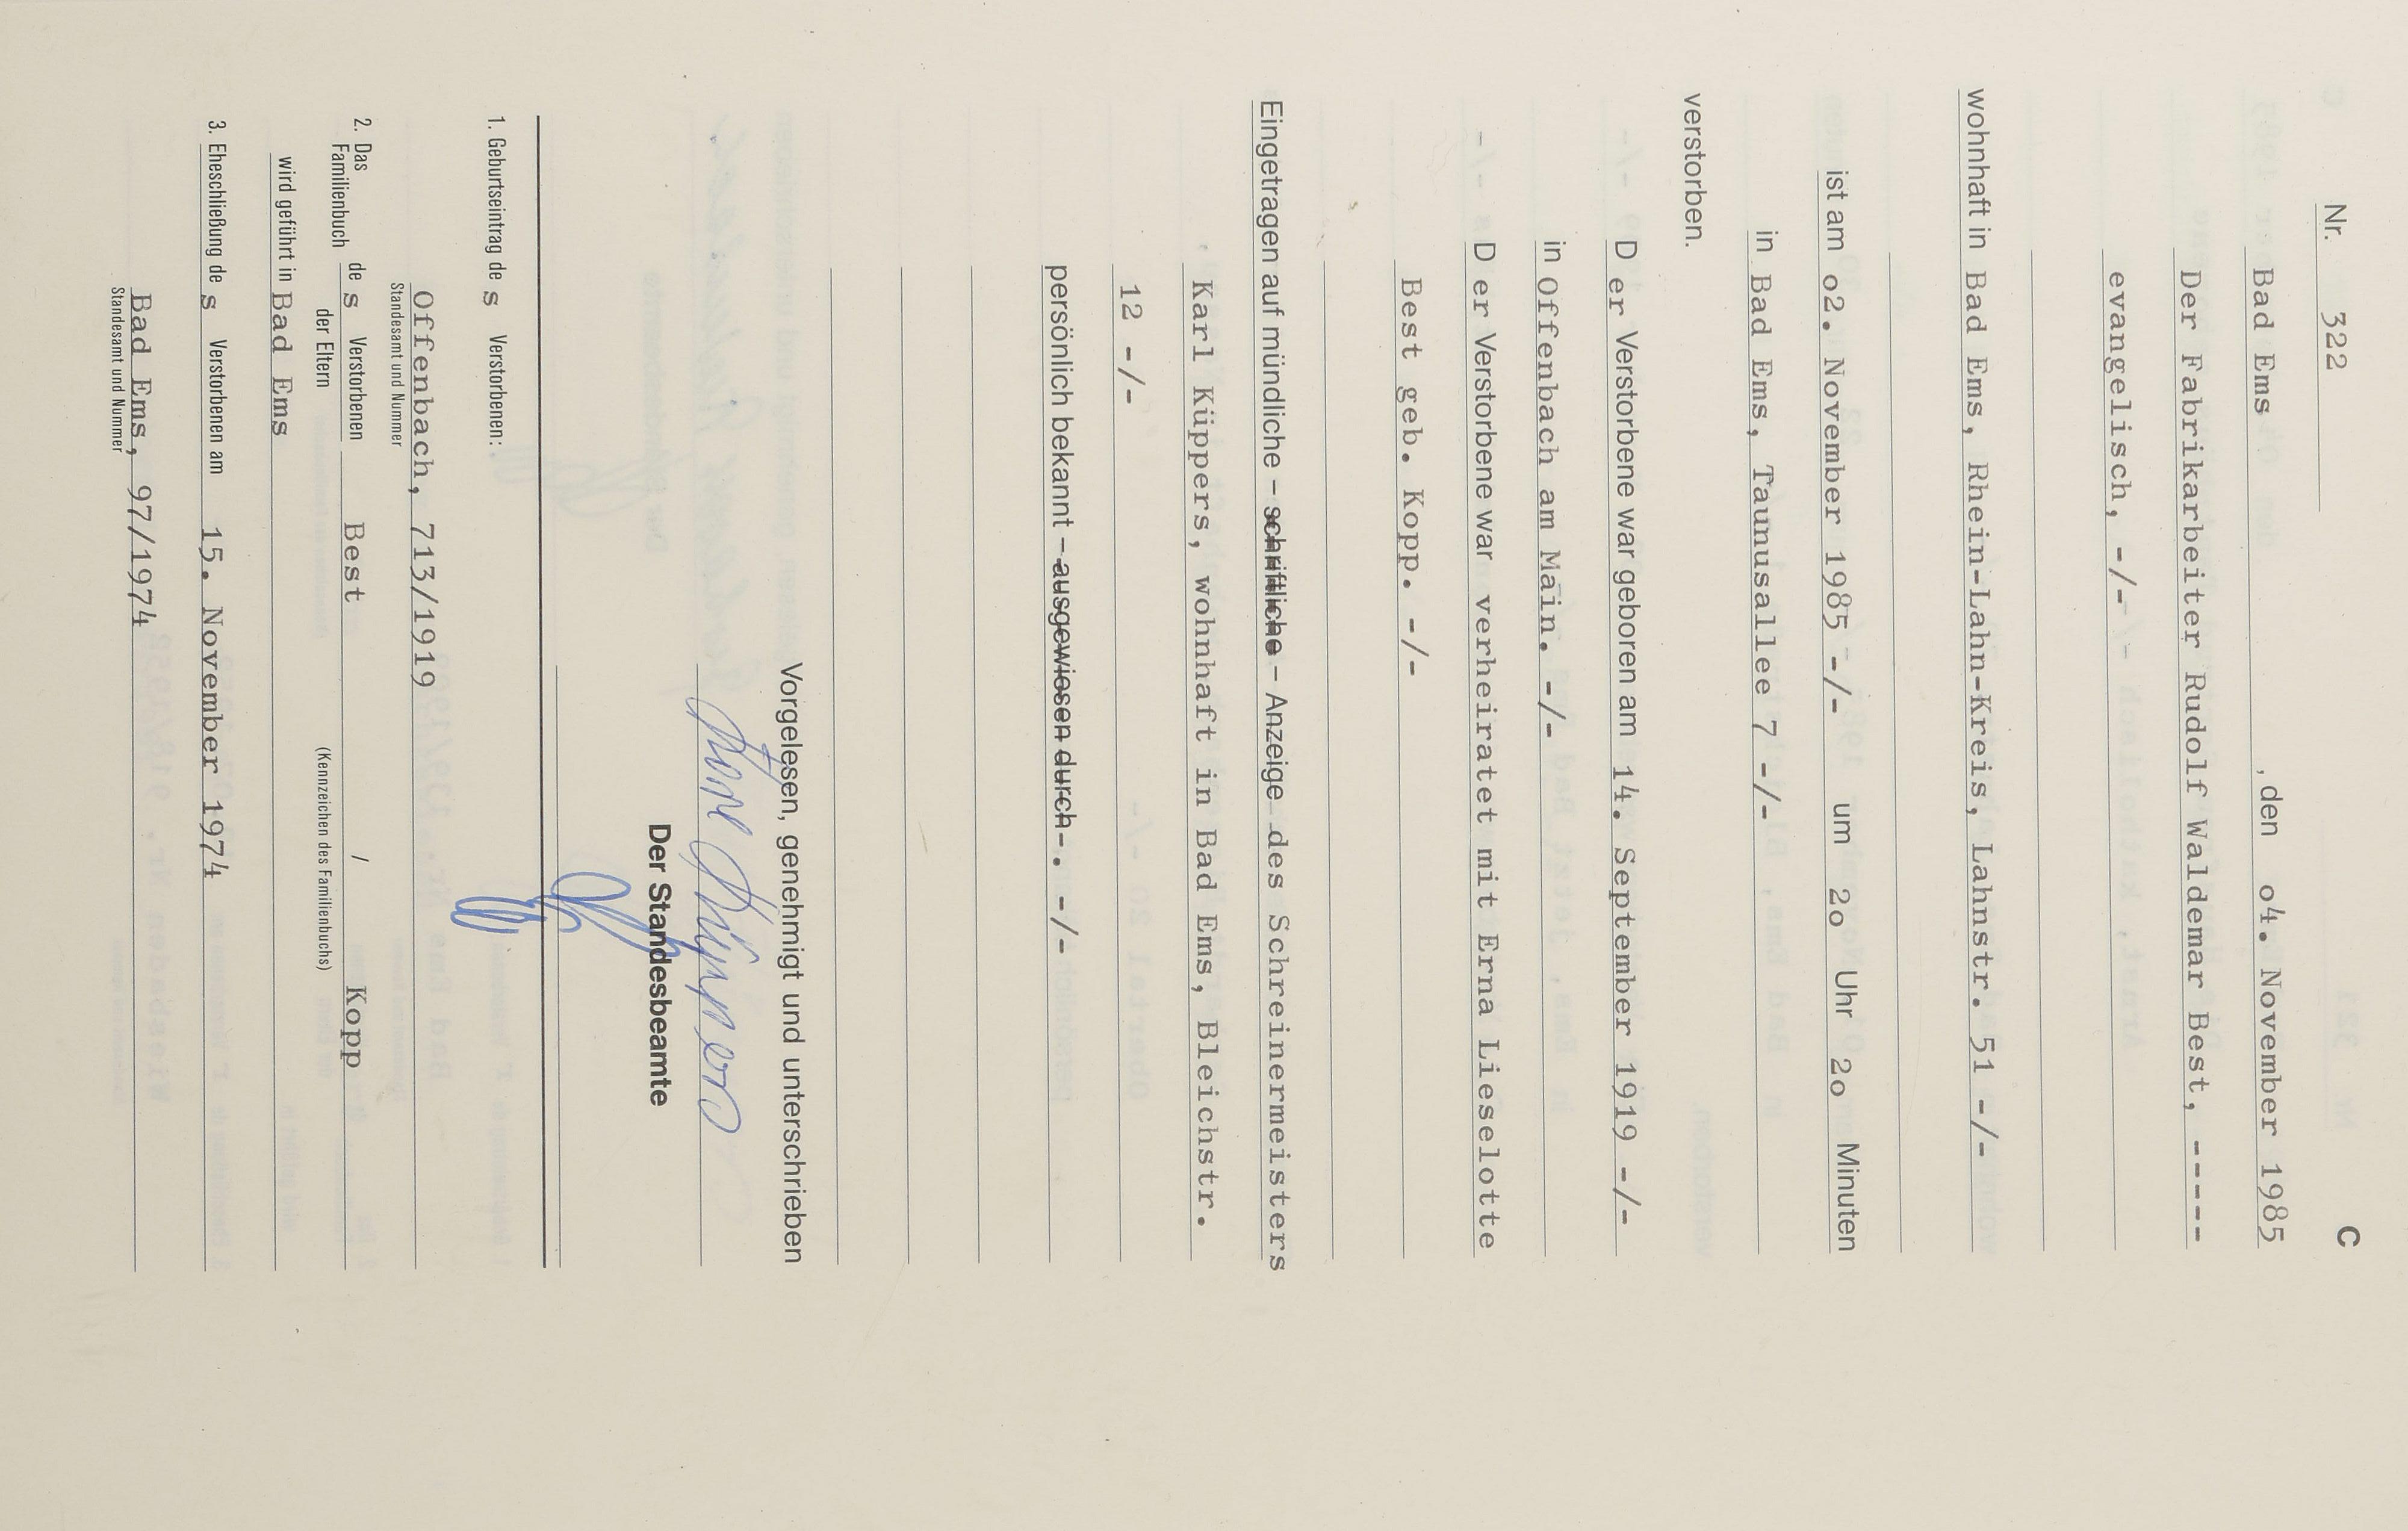 Nr. 322 C
Bad Ems , den o4. November 1985
Der Fabrikarbeiter Rudolf Waldemar Best, -----
evangelisch, -/-
wohnhaft in Bad Ems, Rhein-Lahn-Kreis, Lahnstr. 51 -/-
ist am o2. November 1985 -/- um 2o Uhr 2o Minuten
in Bad Ems, Taunusallee 7 -/-
verstorben.
D er Verstorbene war geboren am 14. September 1919 -/-
in Offenbach am Main. -/-
D er Verstorbene war verheiratet mit Erna Lieselotte
Best geb. Kopp. -/-
Eingetragen auf mündliche – schriftliche – Anzeige des Schreinermeisters
Karl Küppers, wohnhaft in Bad Ems, Bleichstr.
12 -/-
persönlich bekannt – ausgewiesen durch -. -/-
Vorgelesen, genehmigt und unterschrieben
Karl Küppers
Der Standesbeamte
1. Geburtseintrag de s Verstorbenen:
Offenbach, 713/1919
Standesamt und Nummer
2. Das Familienbuch de s Verstorbenen Best / Kopp
der Eltern (Kennzeichen des Familienbuchs)
wird geführt in Bad Ems
3. Eheschließung de s Verstorbenen am 15. November 1974
Bad Ems, 97/1974
Standesamt und Nummer